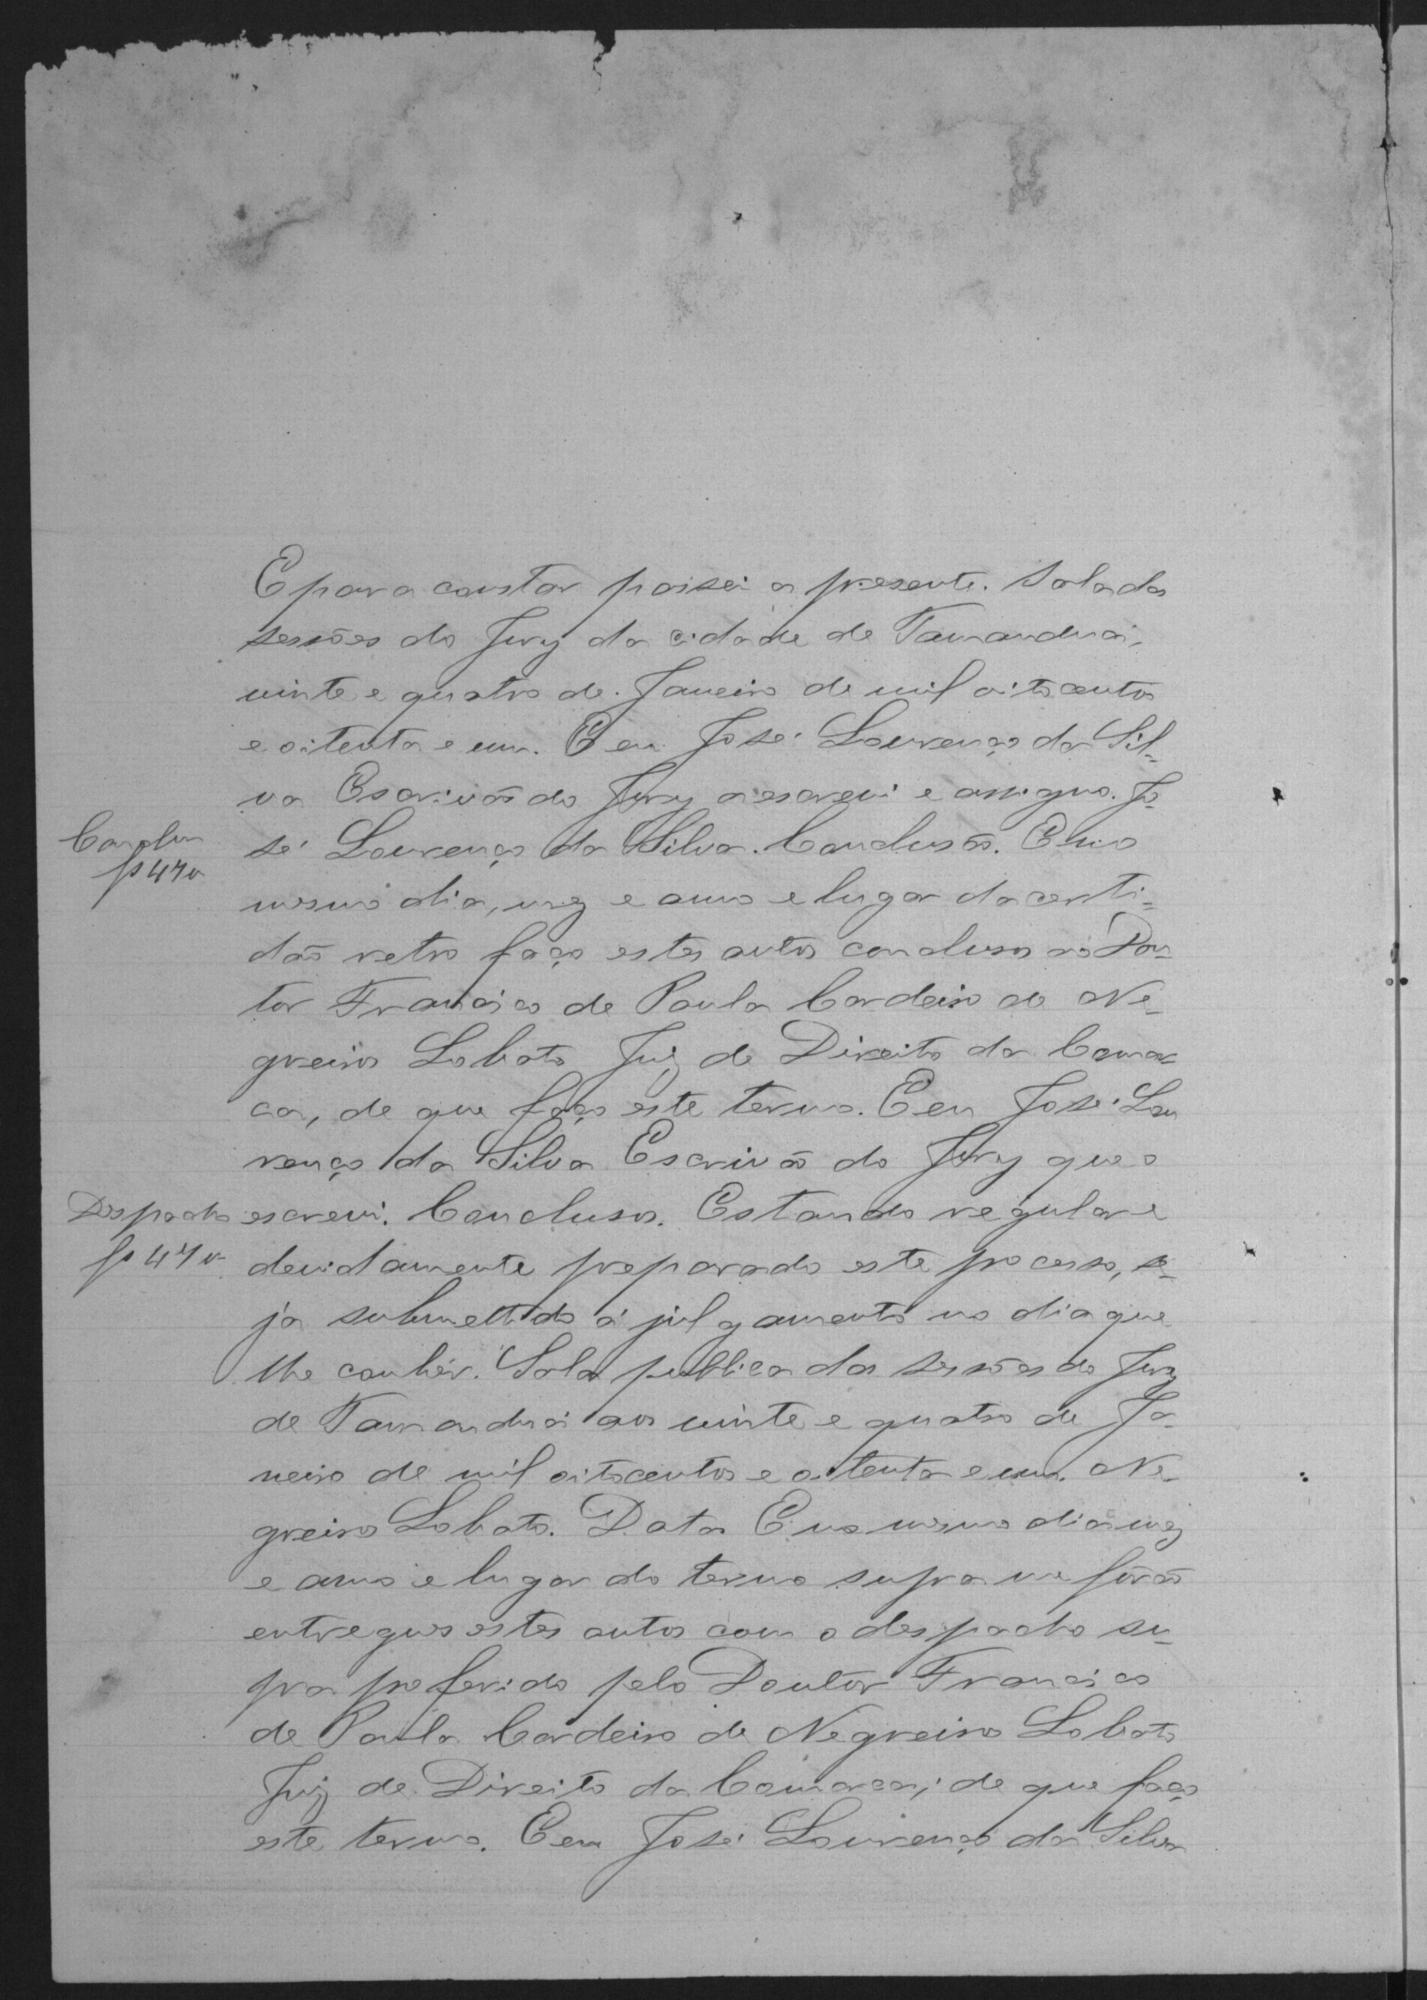 E para constar passei a presente. Sala das
sessões do Jury da cidade de Tamanduá,
vinte e quatro de Janeiro de mil oito centos
e oitenta e um. E eu José Lourenço da Sil-
va Escrivão do Jury a escrevi e assigno. Jo-
sé Lourenço da Silva. Conclusão. E no
Conclm
fs 47v
mesmo dia, mez e anno e lugar da certi-
dão retro faço estes autos conclusos ao Dou-
tor Francisco de Paula Cordeiro de Ne-
greiros Lobato Juiz de Direito da Comar-
ca, de que faço este termo. E eu José Lou
renço da Silva Escrivão do Jury que o
Despacho
fs 47v
escrevi. Conclusos. Estando regular e
devidamente preparado este processo, se-
ja submettido á julgamento no dia que
lhe couber. Sala publica das sessões do Jury
de Tamanduá aos vinte e quatro de Ja-
neiro de mil oitocentos e oitenta e um. Ne-
greiros Lobato. Data E no mesmo dia mez
e anno e lugar do termo supra me forão
entregues estes autos com o despacho su-
pra proferido pelo Doutor Francisco
de Paula Cordeiro de Negreiros Lobato
Juiz de Direito da Comarca, de que faço
este termo. E eu José Lourenço da Silva